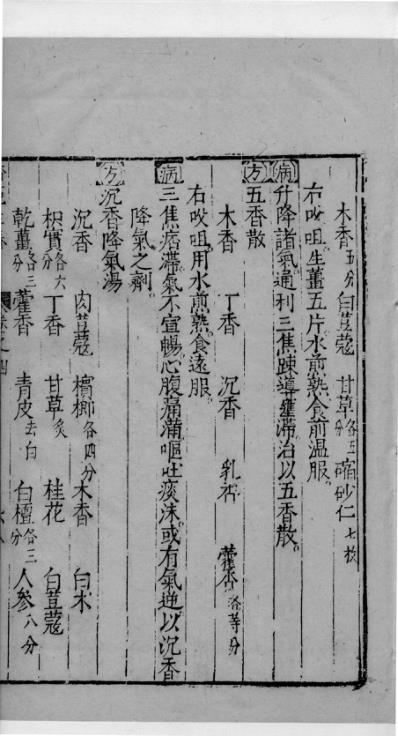 木香五分白荳蔻 甘草各五分縮砂仁七枚
右㕮咀生薑五片水煎熟食前溫服
病升降諸氣通利三焦踈導壅滯治以五香散
方五香散
木香 丁香 沉香 乳香 藿香各等分
右㕮咀用水煎熟食遠服
病三焦痞滯氣不宣暢心腹痛滿嘔吐痰沫或有氣逆以沉香
降氣之劑
方沉香降氣湯
沉香 肉荳蔻 檳榔各四分木香 白术
枳實各六分丁香 甘草炙 桂花 白荳蔻
乾薑各三分藿香 青皮去白 白檀各三分人參八分